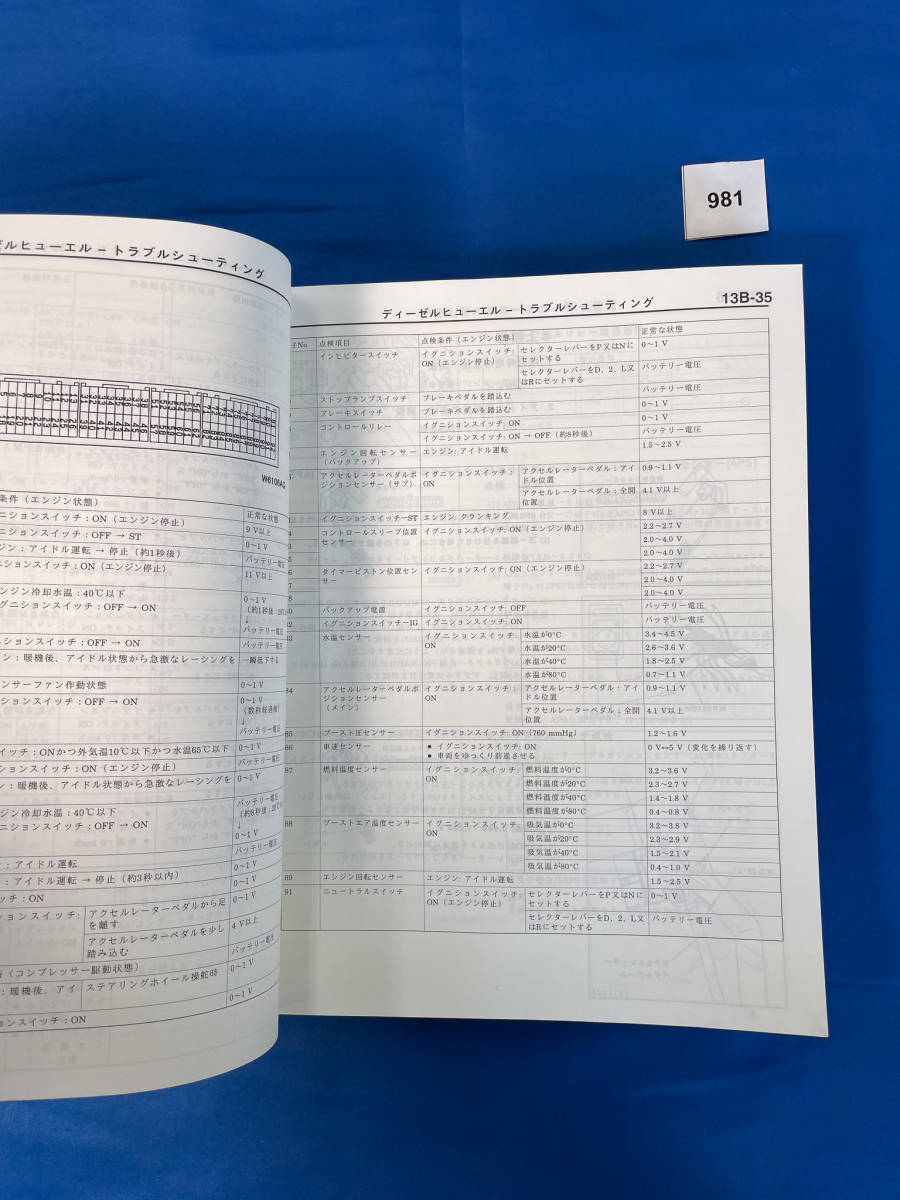 981
ゼルヒューエル－トラブルシューティング
W6106AG
条件（エンジン状態）
正常な状態
ニションスイッチ：ON（エンジン停止）
9 V以上
ニションスイッチ：OFF → ST
0～1 V
ジン：アイドル運転 → 停止（約1秒後）
バッテリー電圧
ニションスイッチ：ON（エンジン停止）
11 V以上
ンジン冷却水温：40℃以下
グニションスイッチ：OFF → ON
0～1 V
↓
バッテリー電圧
ニションスイッチ：OFF → ON
バッテリー電圧
ン：暖機後、アイドル状態から急激なレーシングを
一瞬低下する
ンサーファン作動状態
0～1 V
ションスイッチ：OFF → ON
0～1 V
（数秒経過後）
↓
バッテリー電圧
イッチ：ONかつ外気温10℃以下かつ水温65℃以下
0～1 V
ションスイッチ：ON（エンジン停止）
バッテリー電圧
ン：暖機後、アイドル状態から急激なレーシングを
0～1 V
ジン冷却水温：40℃以下
ニションスイッチ：OFF → ON
バッテリー電圧
↓
0～1 V
バッテリー電圧
：アイドル運転
0～1 V
：アイドル運転 → 停止（約3秒以内）
0～1 V
ッチ：ON
0～1 V
ションスイッチ：
アクセルレーターペダルから足を離す
4 V以上
アクセルレーターペダルを少し踏み込む
バッテリー電圧
（コンプレッサー駆動状態）
0～1 V
：暖機後、アイ
ステアリングホイール操舵時
0～1 V
ョンスイッチ：ON
ディーゼルヒューエル－トラブルシューティング
13B-35
子No
点検項目
点検条件（エンジン状態）
正常な状態
インヒビタースイッチ
イグニションスイッチ：ON（エンジン停止）
セレクターレバーをP又はNにセットする
0～1 V
セレクターレバーをD、2、L又はRにセットする
バッテリー電圧
ストップランプスイッチ
ブレーキペダルを踏込む
バッテリー電圧
ブレーキスイッチ
ブレーキペダルを踏込む
0～1 V
コントロールリレー
イグニションスイッチ：ON
0～1 V
イグニションスイッチ：ON → OFF（約8秒後）
バッテリー電圧
エンジン回転センサー（バックアップ）
エンジン：アイドル運転
1.5～2.5 V
アクセルレーターペダルポジションセンサー（サブ）
イグニションスイッチ：ON
アクセルレーターペダル：アイドル位置
0.9～1.1 V
アクセルレーターペダル：全開位置
4.1 V以上
イグニションスイッチ－ST
エンジン：クランキング
8 V以上
コントロールスリーブ位置センサー
イグニションスイッチ：ON（エンジン停止）
2.2～2.7 V
2.0～4.0 V
2.0～4.0 V
タイマーピストン位置センサー
イグニションスイッチ：ON（エンジン停止）
2.2～2.7 V
2.0～4.0 V
2.0～4.0 V
バックアップ電源
イグニションスイッチ：OFF
バッテリー電圧
イグニションスイッチ－IG
イグニションスイッチ：ON
バッテリー電圧
水温センサー
イグニションスイッチ：ON
水温が0℃
3.4～4.5 V
水温が20℃
2.6～3.6 V
水温が40℃
1.8～2.5 V
水温が80℃
0.7～1.1 V
84
アクセルレーターペダルポジションセンサー（メイン）
イグニションスイッチ：ON
アクセルレーターペダル：アイドル位置
0.9～1.1 V
アクセルレーターペダル：全開位置
4.1 V以上
85
ブースト圧センサー
イグニションスイッチ：ON（760 mmHg）
1.2～1.6 V
86
車速センサー
● イグニションスイッチ：ON
● 車両をゆっくり前進させる
0 V↔5 V（変化を繰り返す）
87
燃料温度センサー
イグニションスイッチ：ON
燃料温度が0℃
3.2～3.6 V
燃料温度が20℃
2.3～2.7 V
燃料温度が40℃
1.4～1.8 V
燃料温度が80℃
0.4～0.8 V
88
ブーストエア温度センサー
イグニションスイッチ：ON
吸気温が0℃
3.2～3.8 V
吸気温が20℃
2.3～2.9 V
吸気温が40℃
1.5～2.1 V
吸気温が80℃
0.4～1.0 V
89
エンジン回転センサー
エンジン：アイドル運転
1.5～2.5 V
91
ニュートラルスイッチ
イグニションスイッチ：ON（エンジン停止）
セレクターレバーをP又はNにセットする
0～1 V
セレクターレバーをD、2、L又はRにセットする
バッテリー電圧